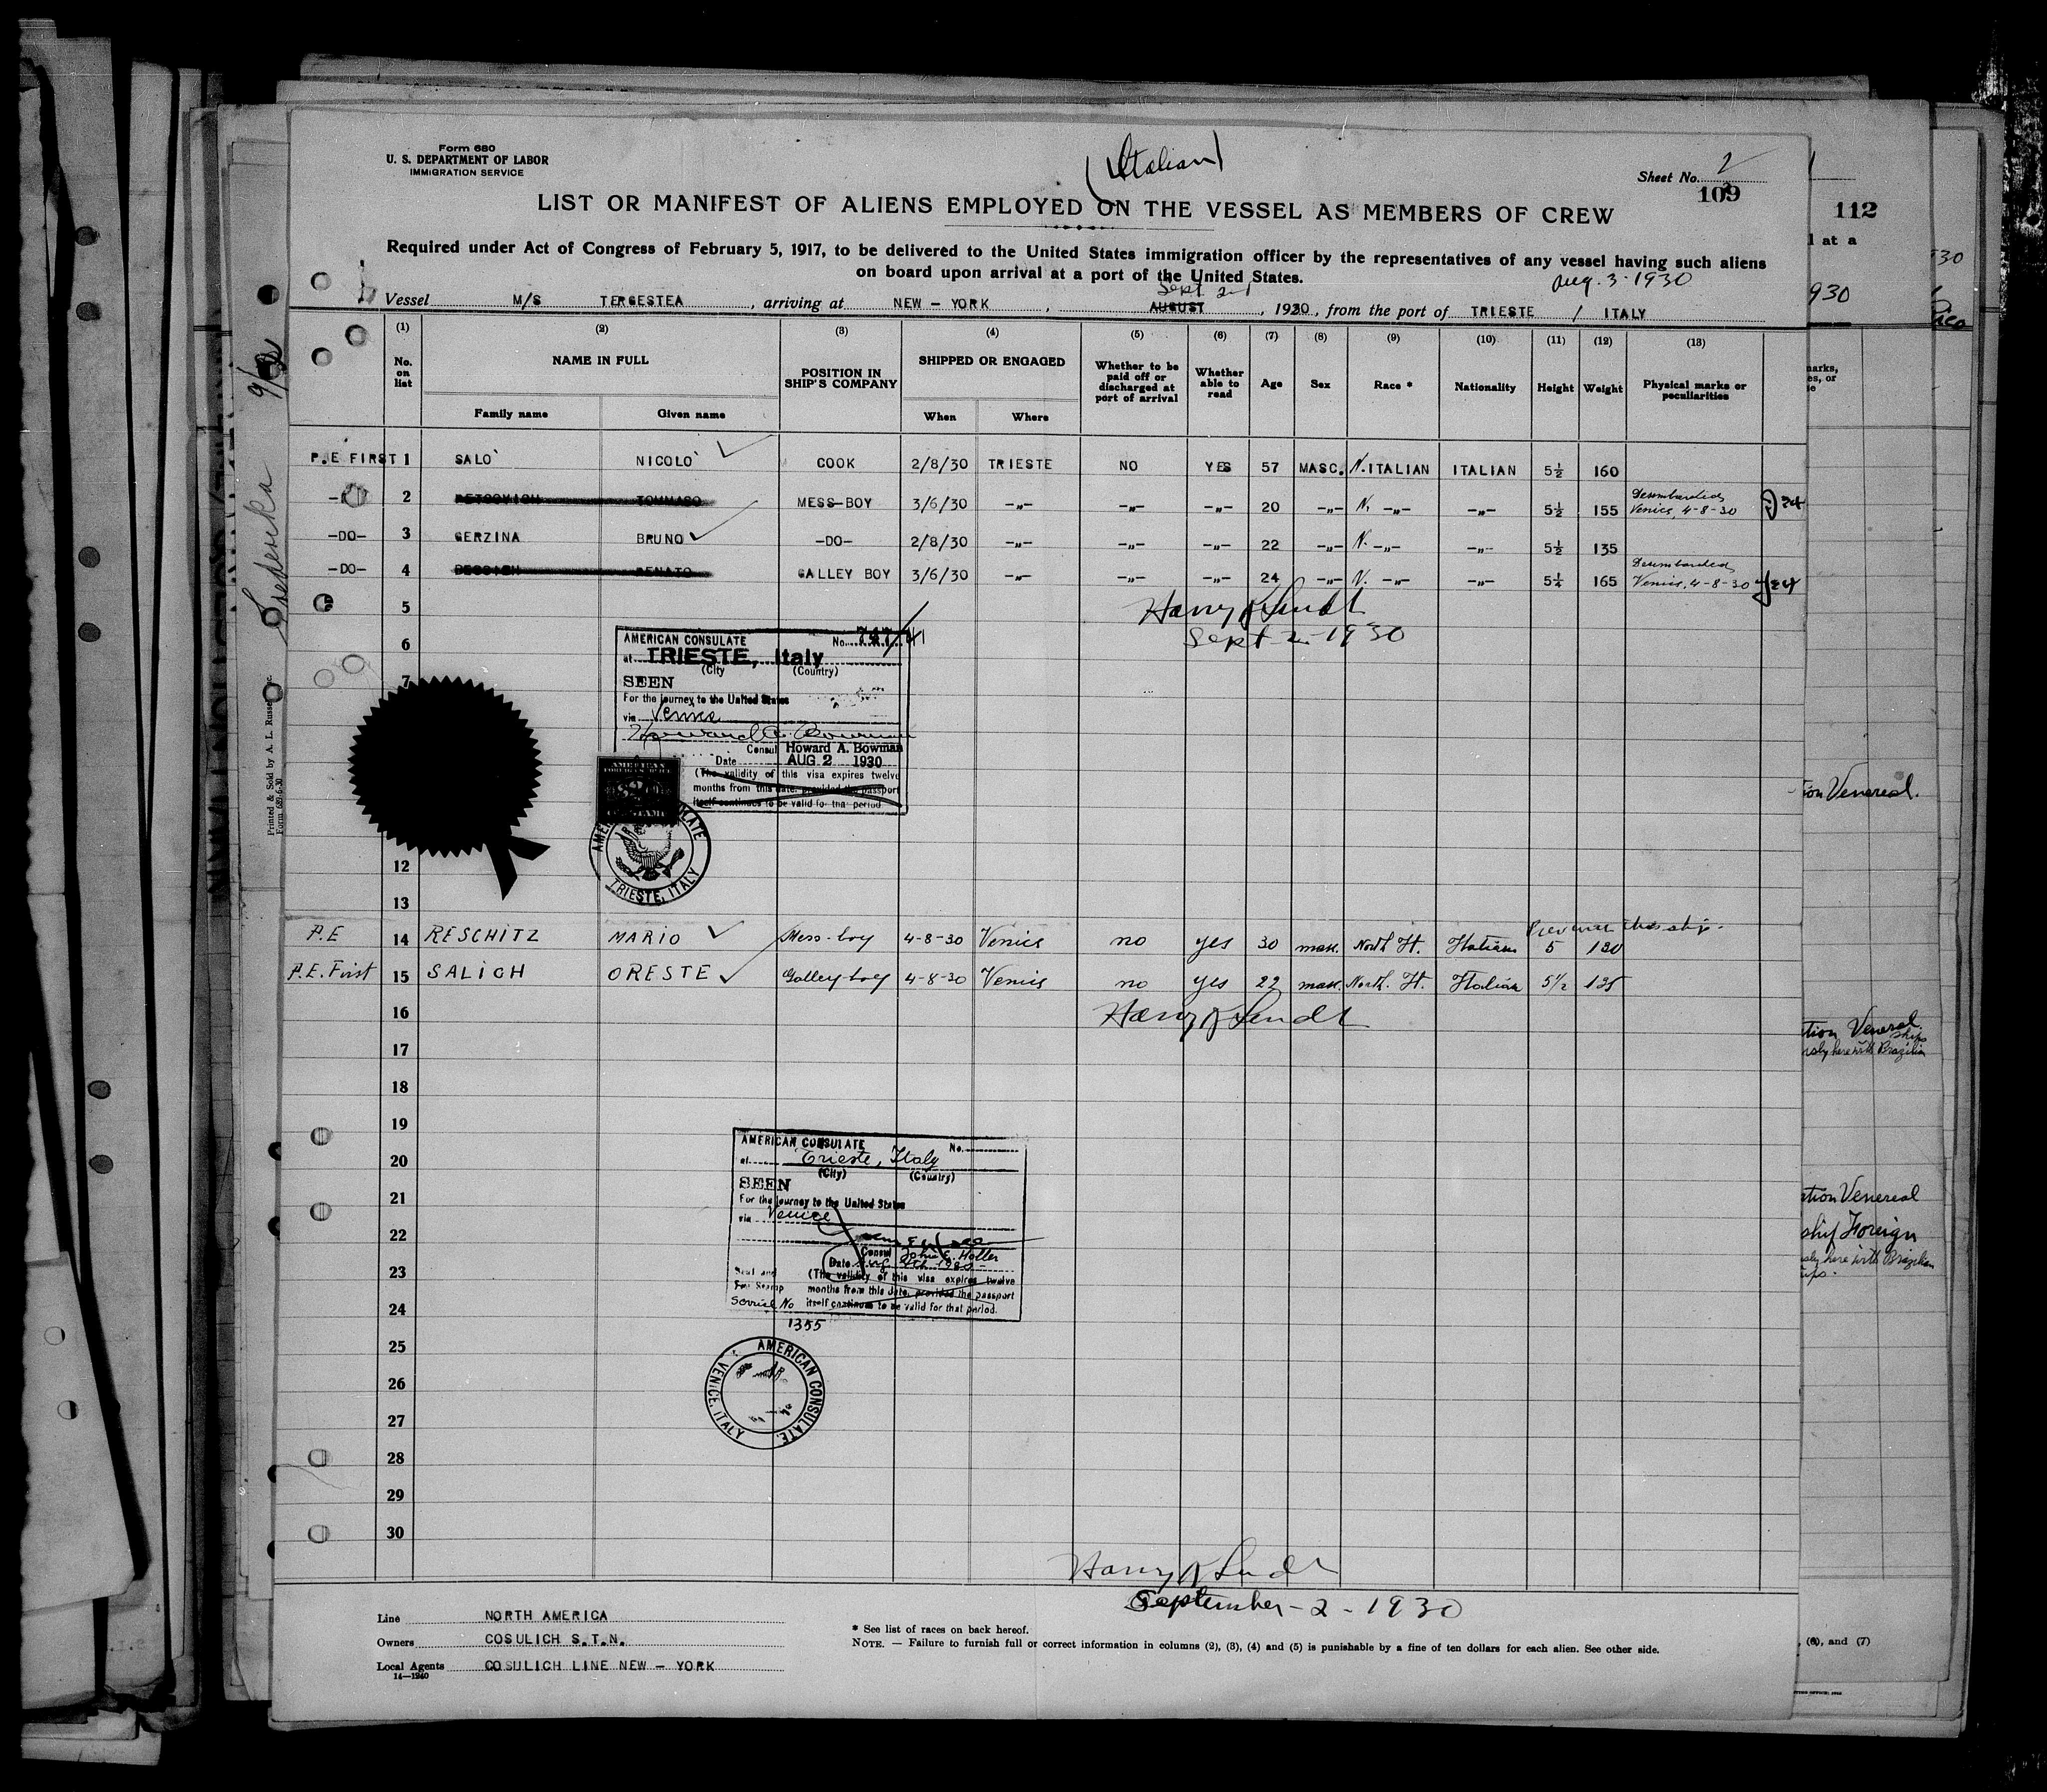 Form 680
U. S. DEPARTMENT OF LABOR
IMMIGRATION SERVICE
(Italian)
Sheet No. 2
109
LIST OR MANIFEST OF ALIENS EMPLOYED ON THE VESSEL AS MEMBERS OF CREW
112
Required under Act of Congress of February 5, 1917, to be delivered to the United States immigration officer by the representatives of any vessel having such aliens
on board upon arrival at a port of the United States.
Aug. 3 - 1930
Sept 2nd
Vessel M/S TERGESTEA, arriving at NEW - YORK, AUGUST, 1930, from the port of TRIESTE / ITALY
(1) (2) (3) (4) (5) (6) (7) (8) (9) (10) (11) (12) (13)
No. on list
NAME IN FULL
Family name
Given name
POSITION IN SHIP'S COMPANY
SHIPPED OR ENGAGED
When
Where
Whether to be paid off or discharged at port of arrival
Whether able to read
Age
Sex
Race *
Nationality
Height
Weight
Physical marks or peculiarities
P.E FIRST 1 SALO` NICOLO` COOK 2/8/30 TRIESTE NO YES 57 MASC. N. ITALIAN ITALIAN 5½ 160
2 TOMMASO MESS-BOY 3/6/30 -„- -„- -„- 20 -„- N. -„- -„- 5½ 155 Venice, 4-8-30
-DO- 3 GERZINA BRUNO -DO- 2/8/30 -„- -„- -„- 22 -„- N. -„- -„- 5½ 135
-DO- 4 RENATO GALLEY BOY 3/6/30 -„- -„- -„- 24 -„- N. -„- -„- 5¼ 165 Venice, 4-8-30
5
Sept 2 - 1930
6
7
AMERICAN CONSULATE No.
at TRIESTE, Italy
(City (Country)
SEEN
For the journey to the United States
via Venice
Howard A. Bowman
Consul Howard A. Bowman
Date AUG 2 1930
(The validity of this visa expires twelve
months from this date, provided the passport
itself continues to be valid for that period
AMERICAN CONSULATE
TRIESTE, ITALY
12
13
P.E 14 RESCHITZ MARIO Mess-boy 4-8-30 Venice no yes 30 masc. North It. Italian 5 130
P.E. First 15 SALICH ORESTE Galley-boy 4-8-30 Venice no yes 22 masc. North. It. Italian 5½ 135
16
17
18
19
20
21
22
23
24
25
26
27
28
29
30
AMERICAN CONSULATE No.
at Trieste, Italy
(City) (Country)
SEEN
For the journey to the United States
via Venice
Consul John E. Holler
Date Aug. 4th 1930
Seal and
Fee Stamp
(The validity of this visa expires twelve
months from this date, provided the passport
itself continues to be valid for that period.
Service No
1355
AMERICAN CONSULATE. VENICE, ITALY
September - 2 - 1930
Line NORTH AMERICA
Owners COSULICH S.T.N.
Local Agents COSULICH LINE NEW - YORK
14-1240
* See list of races on back hereof.
NOTE. — Failure to furnish full or correct information in columns (2), (3), (4) and (5) is punishable by a fine of ten dollars for each alien. See other side.
Frederika
Printed & Sold by A. L. Russell
Form 689-6-30
l at a
930
Venereal.
Venereal.
here with Brazilian
Venereal
Foreign
here with Brazilian
, (6), and (7)